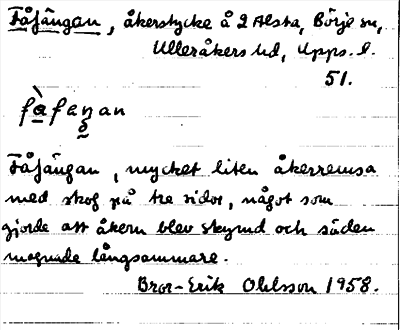 Fåfängan, åkerstycke å 2 Alsta, Börje sn,
Ulleråkers hd, Upps. l.
51.
fàfaŋan
Fåfängan, mycket liten åkerremsa
med skog på tre sidor, något som
gjorde att åkern blev skymd och säden
mognade långsammare.
Bror-Erik Ohlsson 1958.